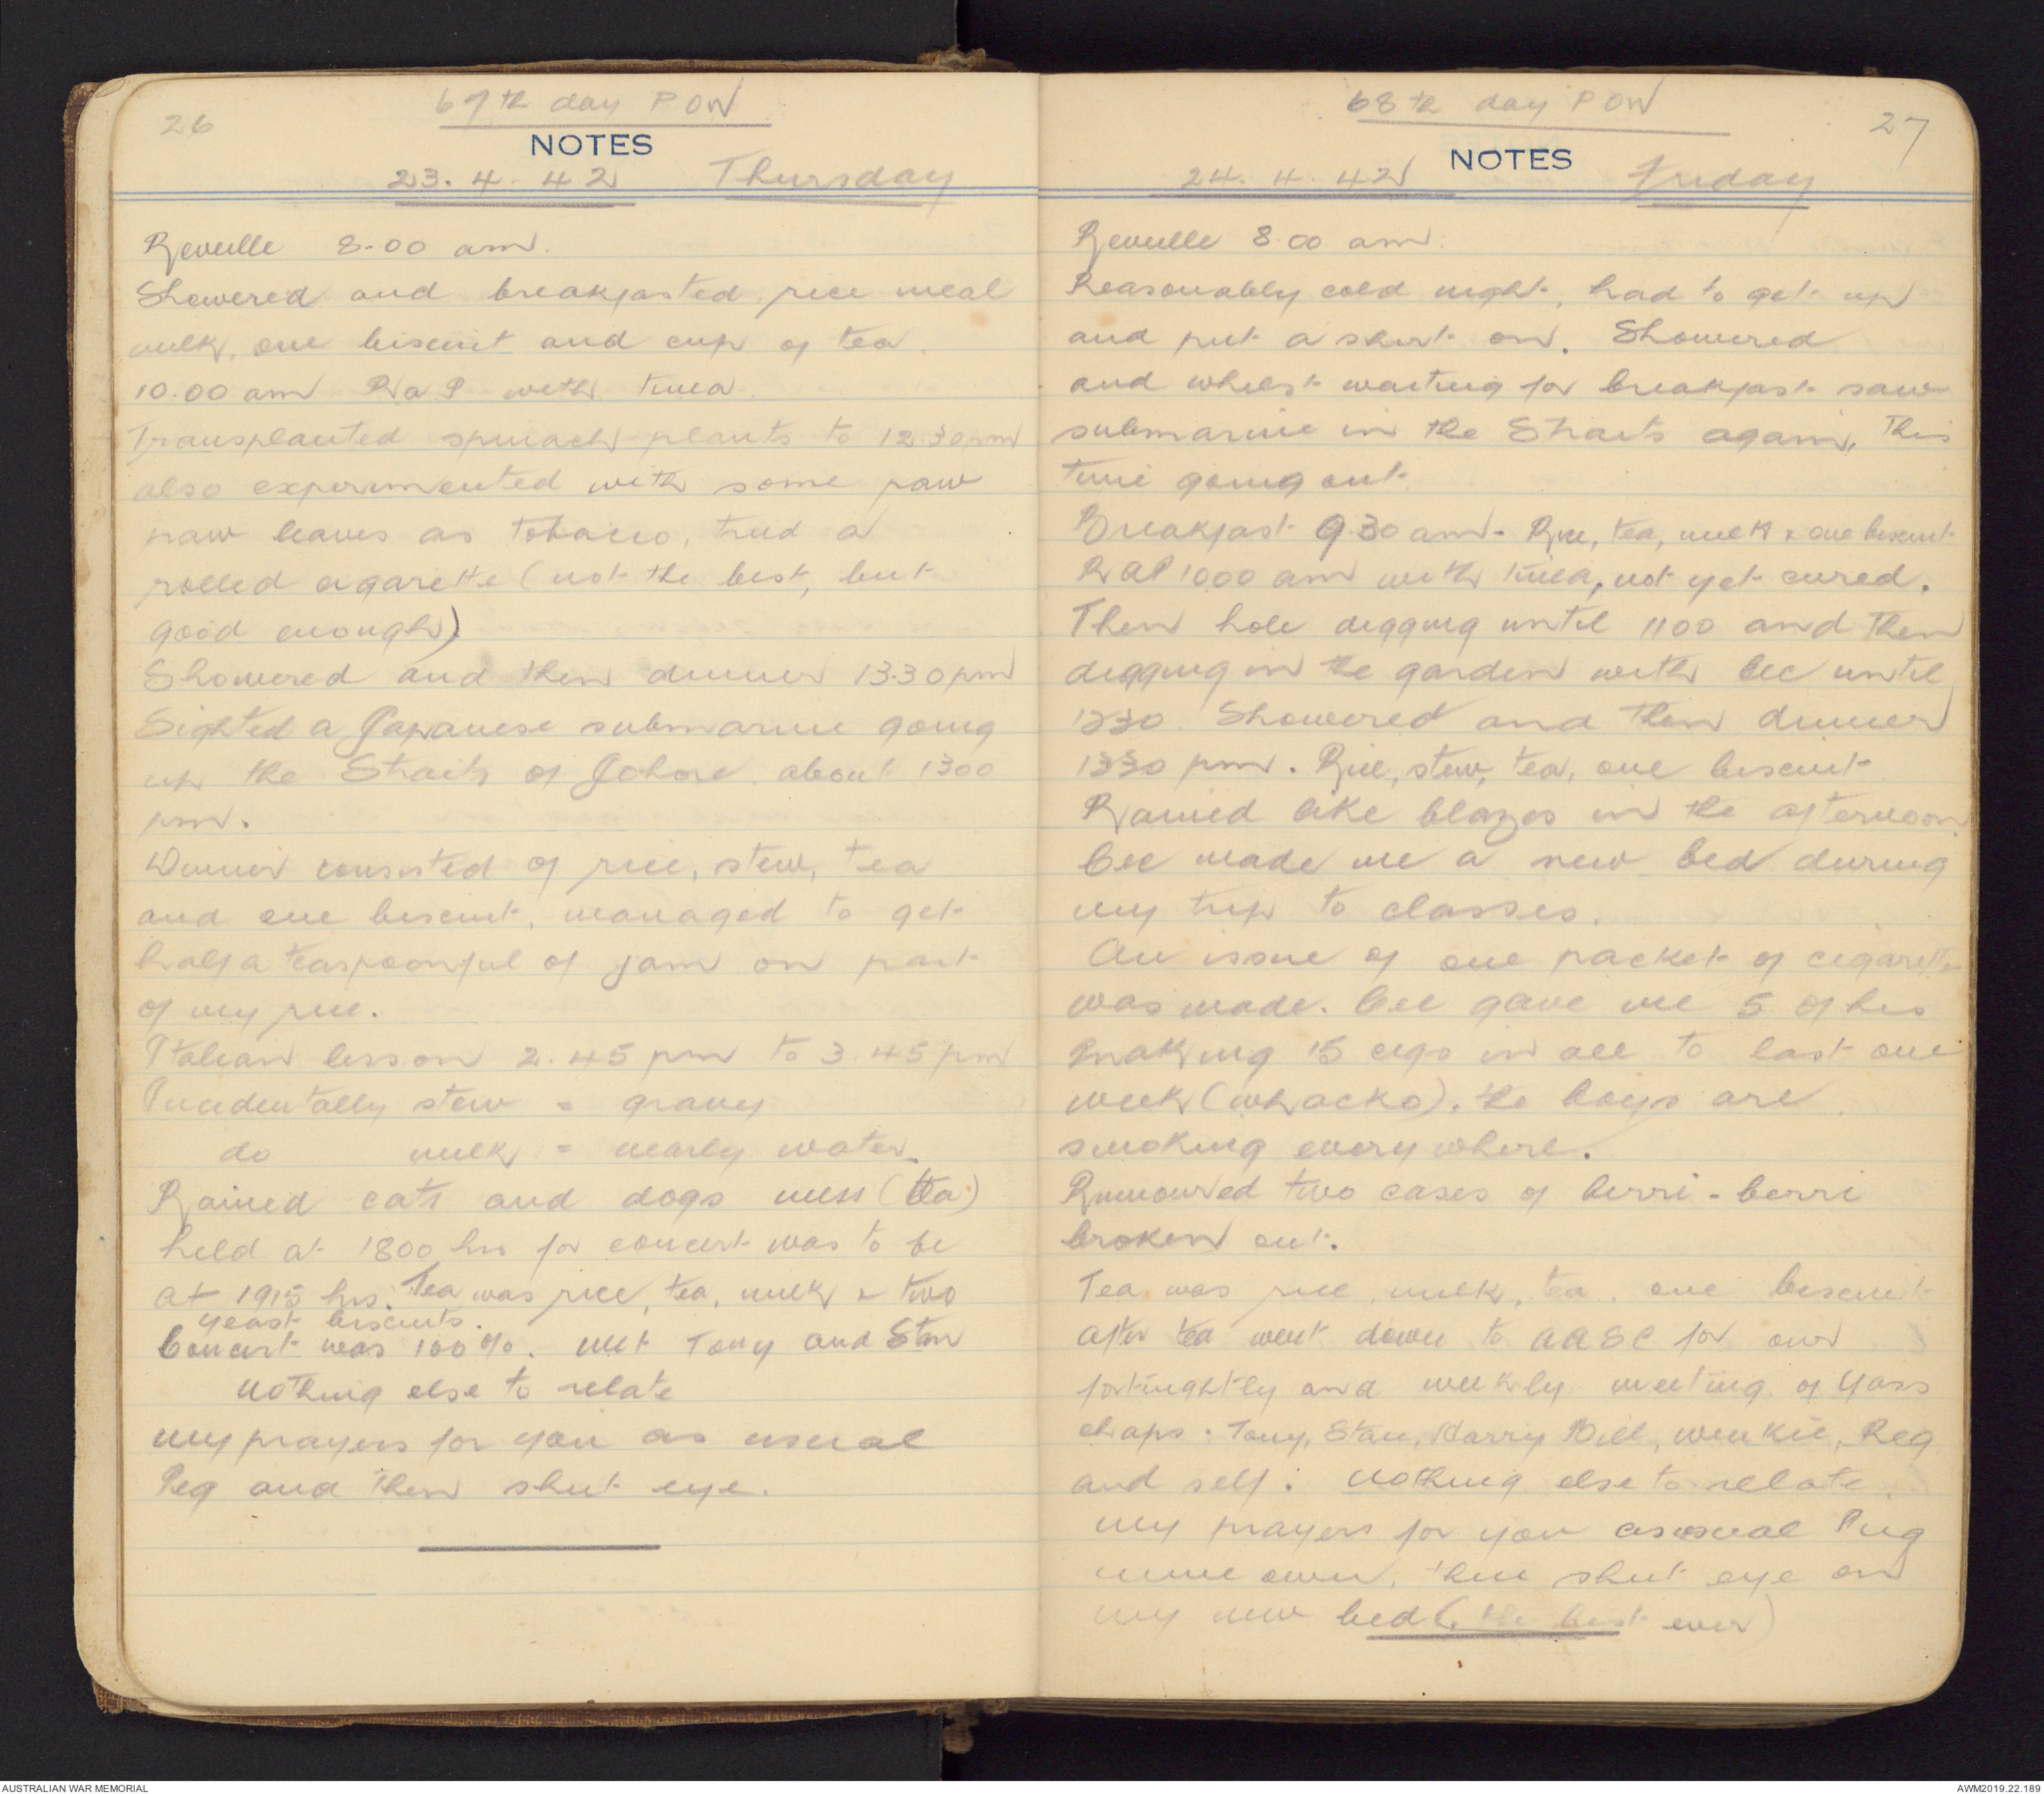 26
67th day POW
NOTES
23.4.42 Thursday
Reveille 8.00 am.
Showered and breakfasted, rice meal
milk, one biscuit and cup of tea.
10.00 am RaP with tinea.
Transplanted spinach plants to 12.30pm
also experimented with some paw
paw leaves as tobacco, tried a
rolled cigarette (not the best, but
good enough)
Showered and then dinner 13.30pm
Sighted a Japanese submarine going
up the Straits of Johore about 1300
pm.
Dinner consisted of rice, stew, tea
and one biscuit, managed to get
half a teaspoonful of jam on part
of my rice.
Italian lesson 2.45 pm to 3.45 pm
Incidentally stew = gravy
do milk = nearly water.
Rained cats and dogs mess (tea)
held at 1800 hrs for concert was to be
at 1915 hrs. Tea was rice, tea, milk & two
yeast biscuits.
Concert was 100%. met Tony and Stan
nothing else to relate
my prayers for you as usual
Peg and then shut eye.
68th day POW
27
NOTES
24.4.42 Friday
Reveille 8.00 am.
Reasonably cold night, had to get up
and put a shirt on. Showered
and whilst waiting for breakfast saw
submarine in the Straits again, this
time going out.
Breakfast 9.30 am - Rice, tea, milk & one biscuit
RaP 1000 am with tinea, not yet cured.
Then hole digging until 1100 and then
digging in the garden with Cec until
1230. Showered and then dinner
1330 pm. Rice, stew, tea, one biscuit
Rained like blazes in the afternoon
Cec made me a new bed during
my trip to classes.
An issue of one packet of cigarettes
was made. Cec gave me 5 of his
making 15 cigs in all to last one
week (whacko). the boys are
smoking every where.
Rumoured two cases of berri-berri
broken out.
Tea was rice, milk, tea, one biscuit
after tea went down to AASC for our
fortnightly and weekly meeting of Yass
chaps. Tony, Stan, Harry Bill, Winkie, Reg
and self. nothing else to relate.
my prayers for you as usual Peg
mine own, then shut eye on
my new bed (the best ever)
AUSTRALIAN WAR MEMORIAL
AWM2019.22.189